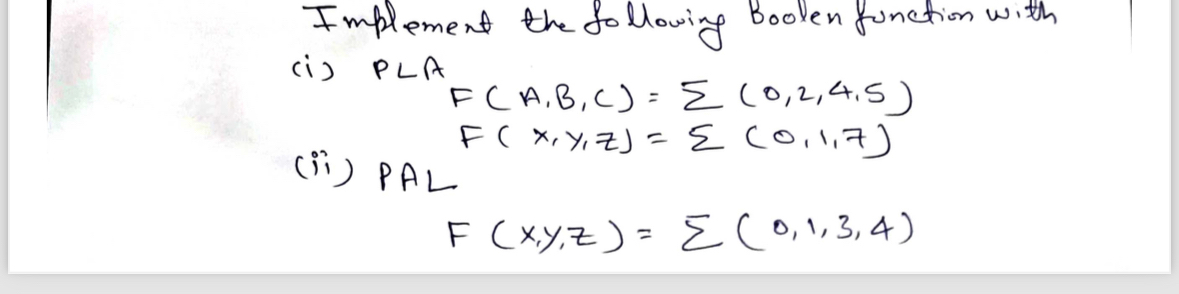 Implement the following Boolen function with
(i) PLA
F(A,B,C) = Σ (0,2,4,5)
F(X,Y,Z) = Σ (0,1,7)
(ii) PAL
F (X,Y,Z) = Σ (0,1,3,4)